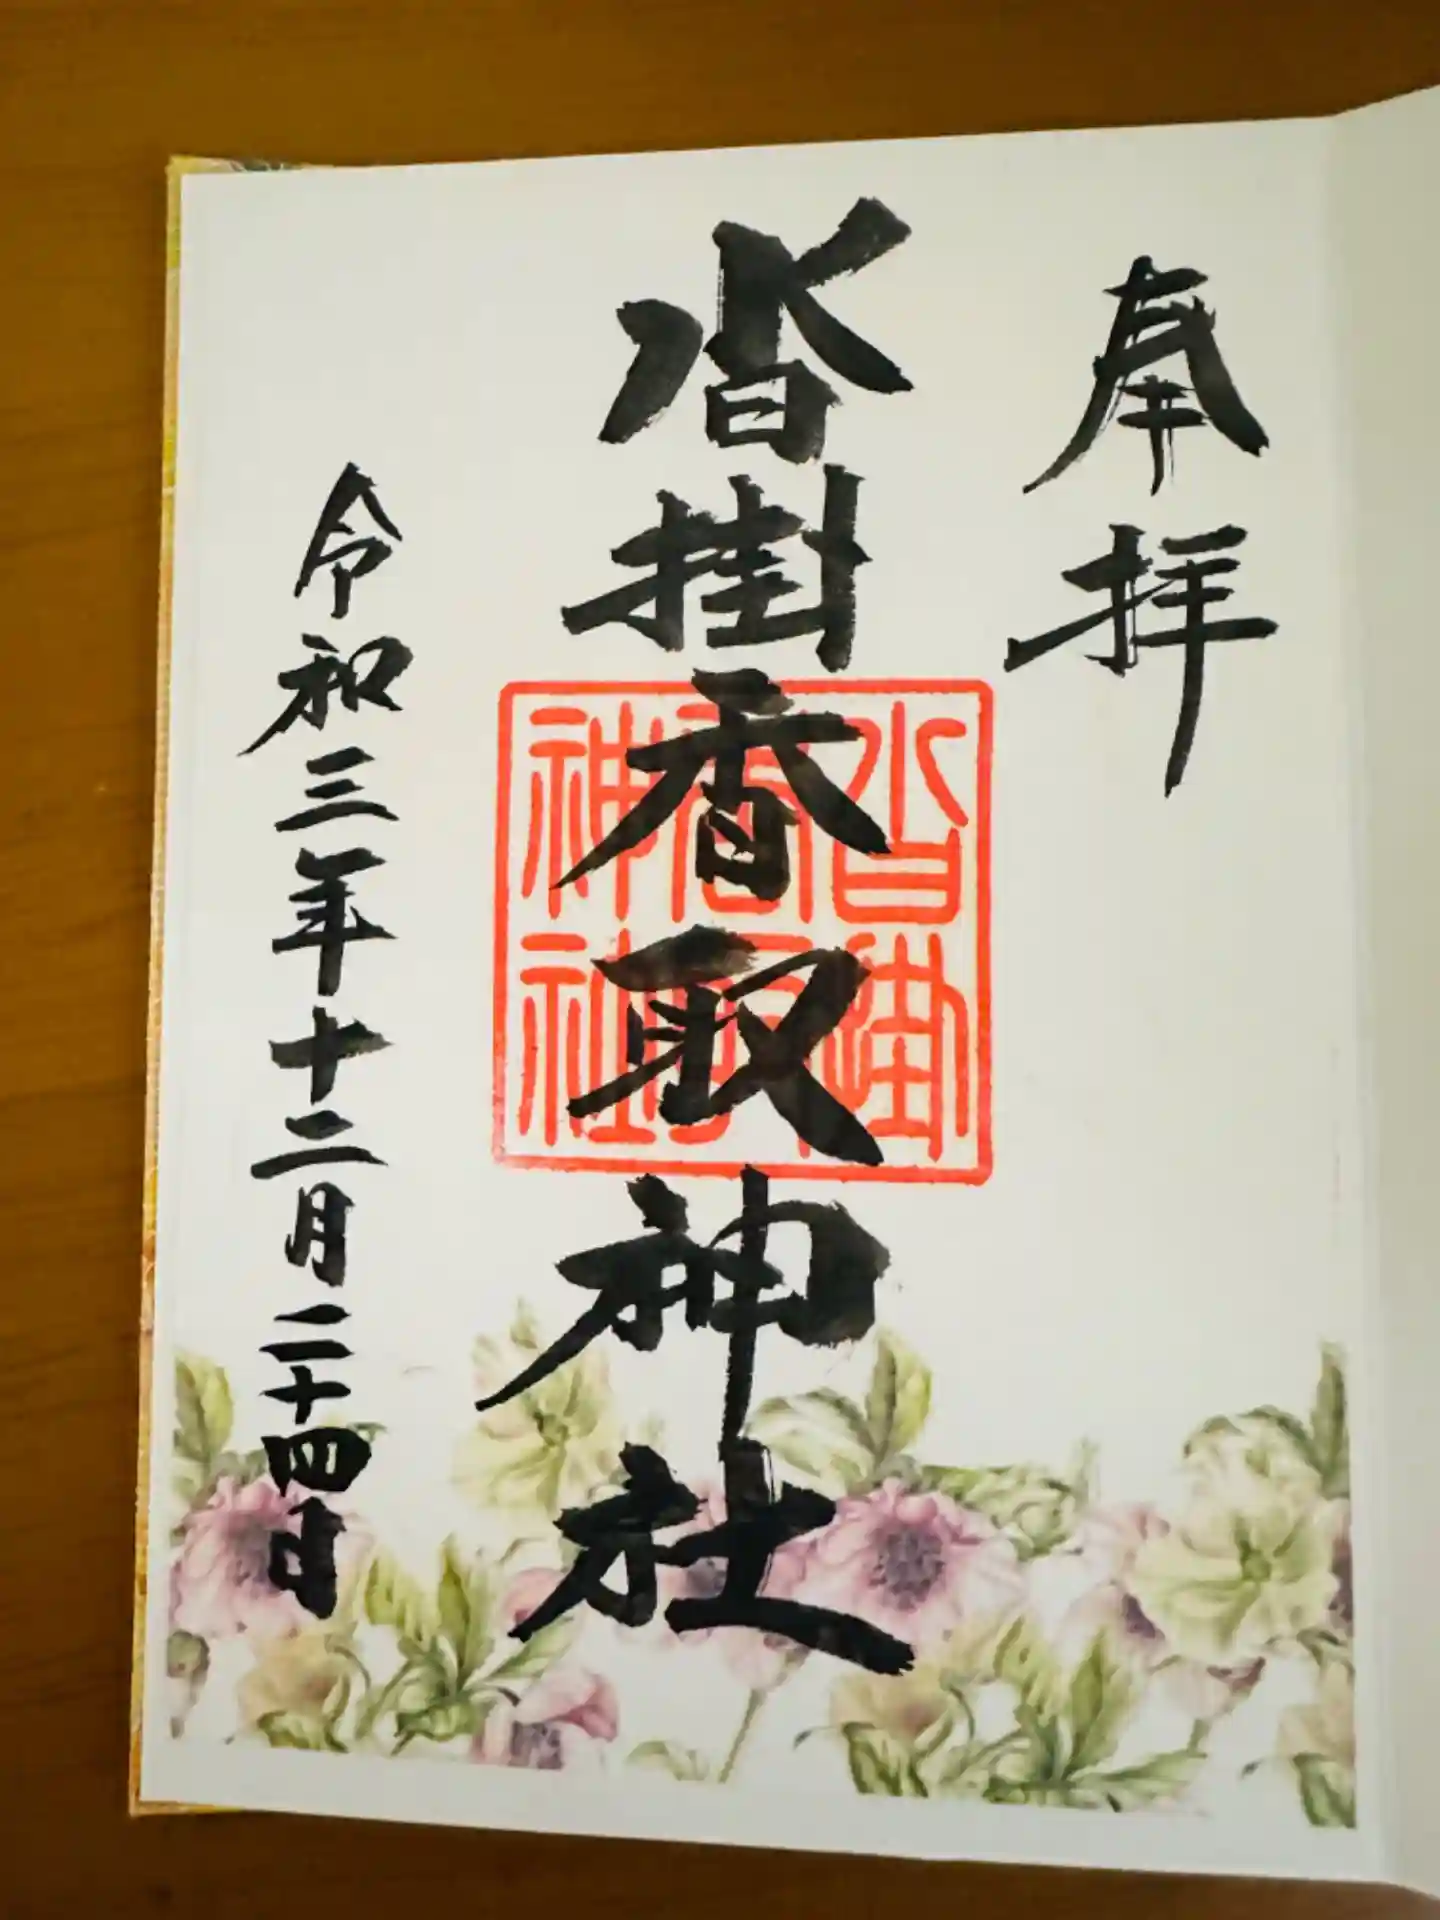 奉拝
沓掛香取神社
沓掛
香取
神社
令和三年十二月二十四日